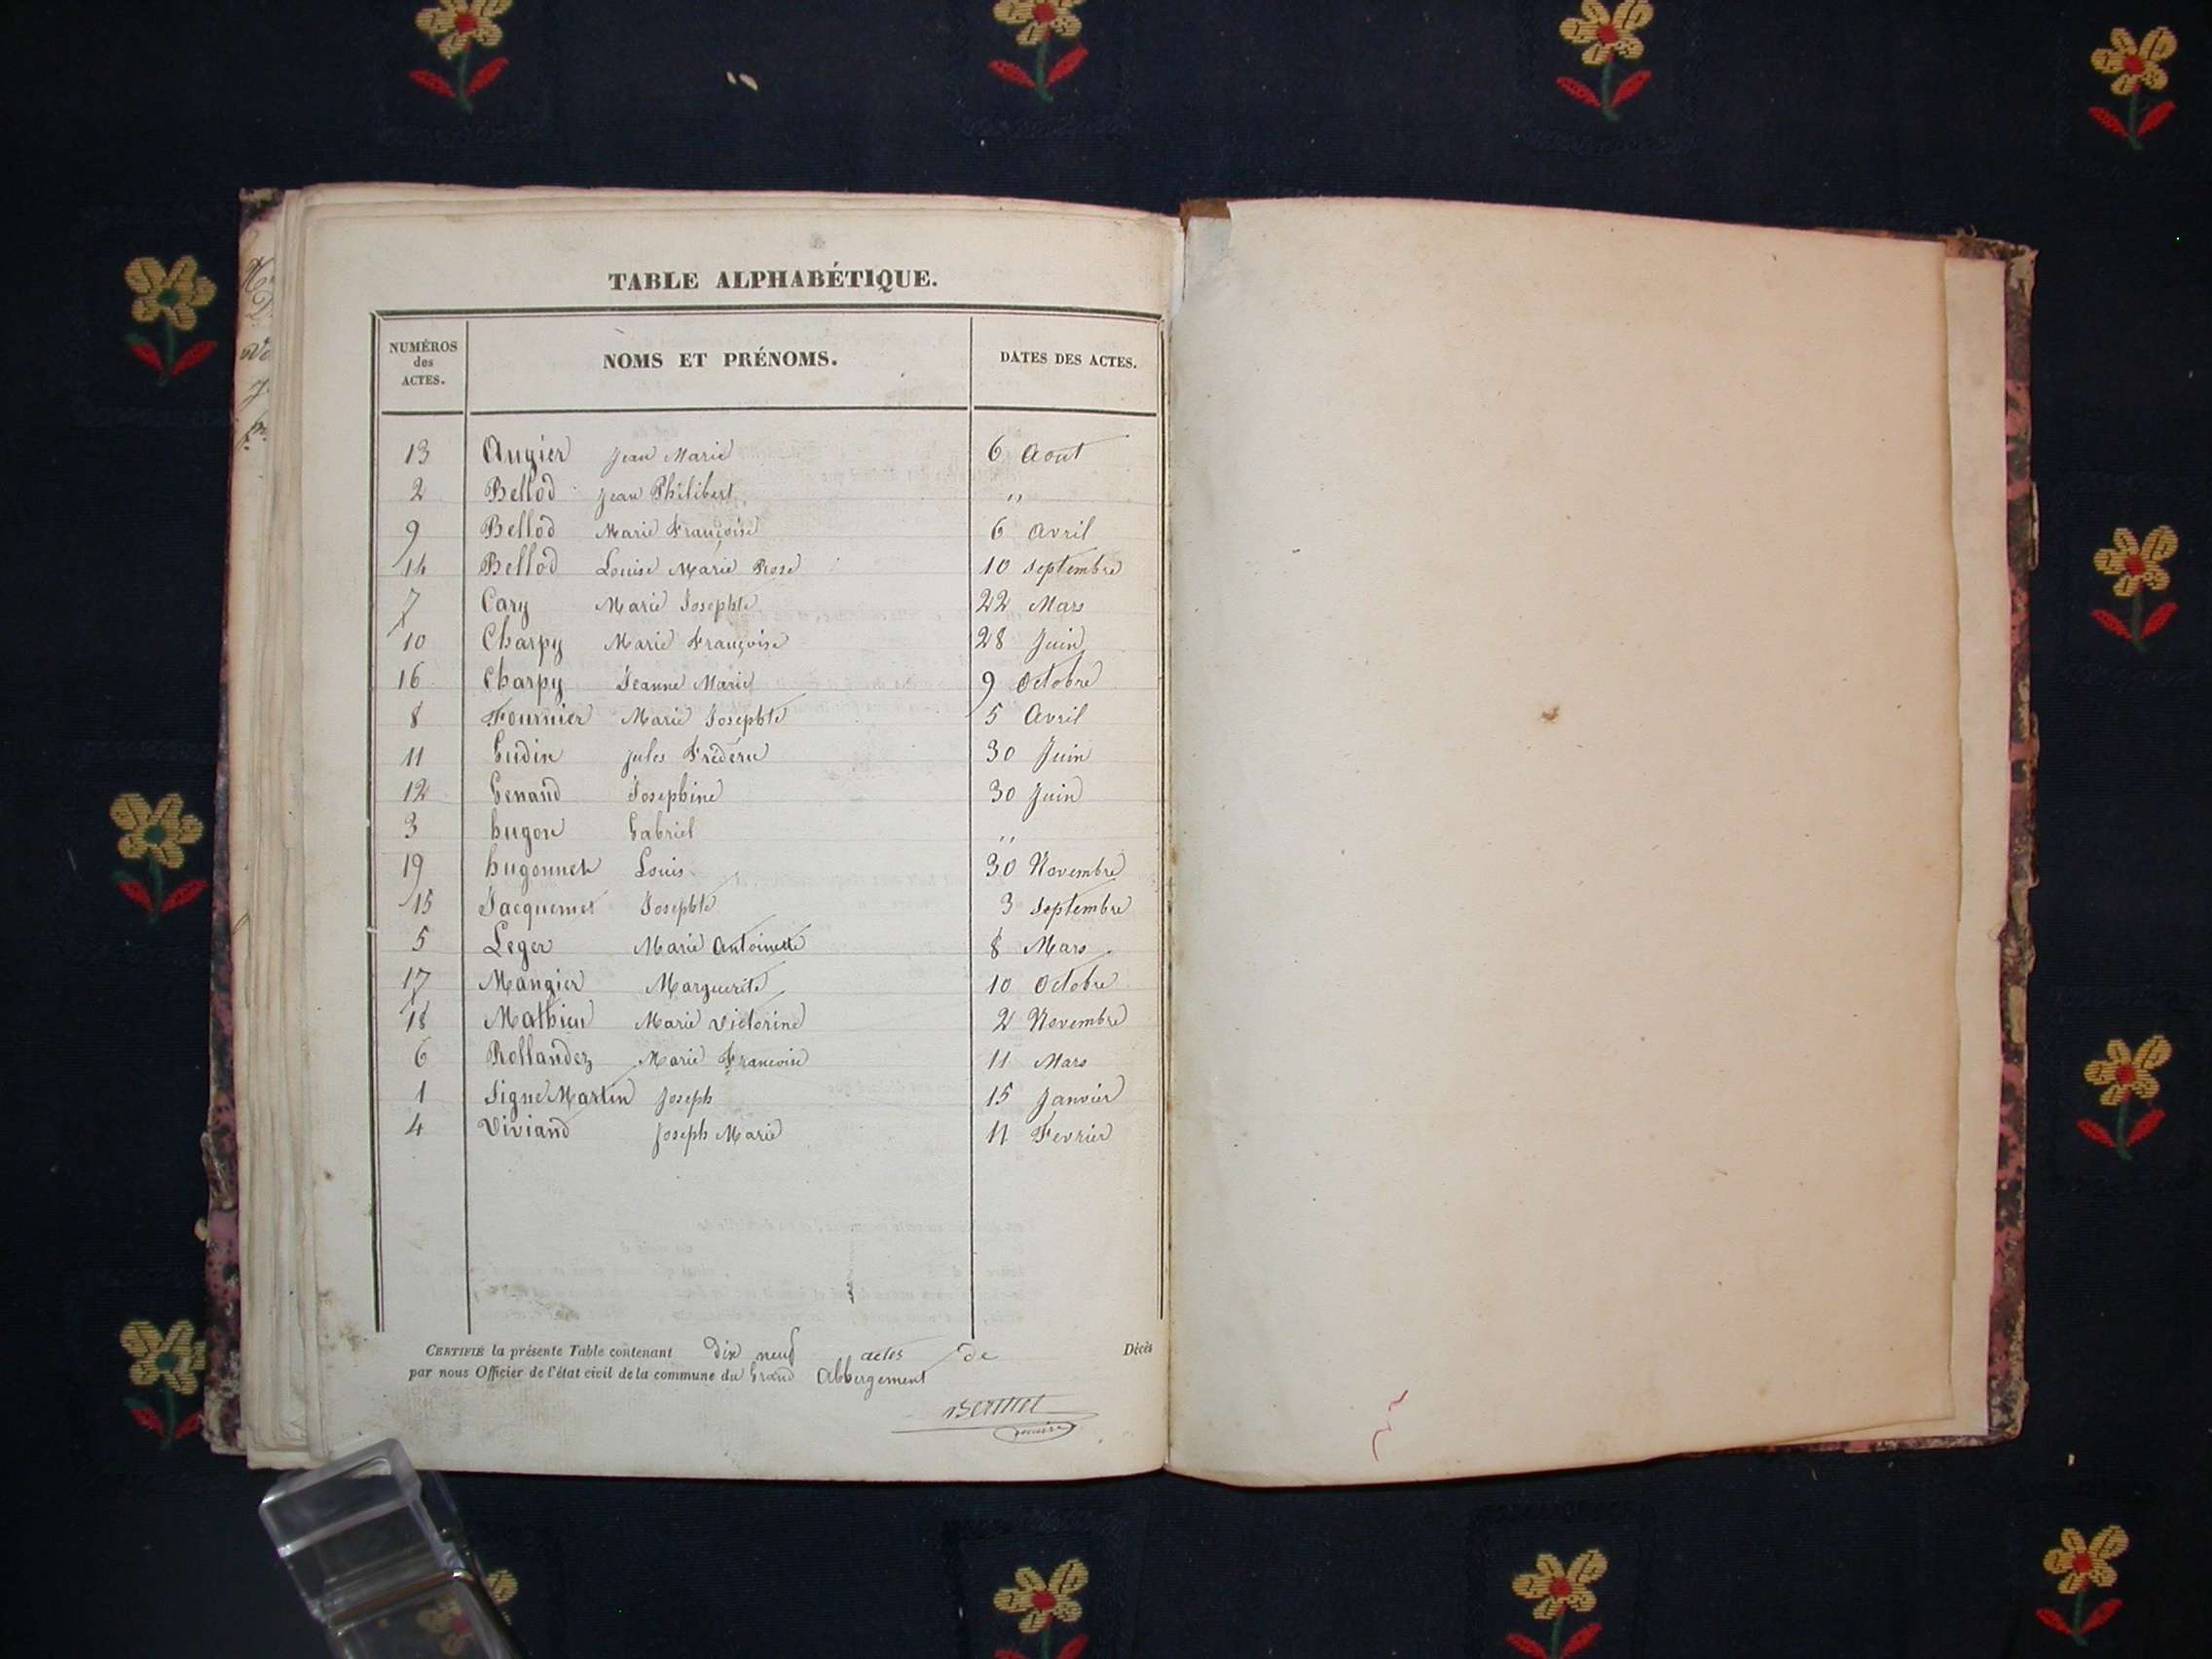 TABLE ALPHABÉTIQUE.
NUMÉROS des ACTES. NOMS ET PRÉNOMS. DATES DES ACTES.
13 Augier Jean Marie 6 Aout
2 Bellod Jean Philibert "
9 Bellod Marie Françoise 6 Avril
14 Bellod Louise Marie Rose 10 Septembre
7 Cary Marie Josephte 22 Mars
10 Charpy Marie Françoise 28 Juin
16 Charpy Jeanne Marie 9 Octobre
8 Fournier Marie Josephte 5 Avril
11 Gudin Jules Fréderic 30 Juin
12 Genand Josephine 30 Juin
3 hugon Gabriel "
19 hugonnet Louis 30 Novembre
15 Jacquemet Josephte 3 Septembre
5 Leger Marie Antoinette 8 Mars
17 Mangier Marguerite 10 Octobre
18 Mathieu Marie Victorine 2 Novembre
6 Rollandez Marie Francoise 11 Mars
1 Signe Martin Joseph 15 Janvier
4 Viviand Joseph Marie 11 Fevrier
CERTIFIÉ la présente Table contenant dix neuf actes de Décès
par nous Officier de l'état civil de la commune du Grand Abbergement
maire